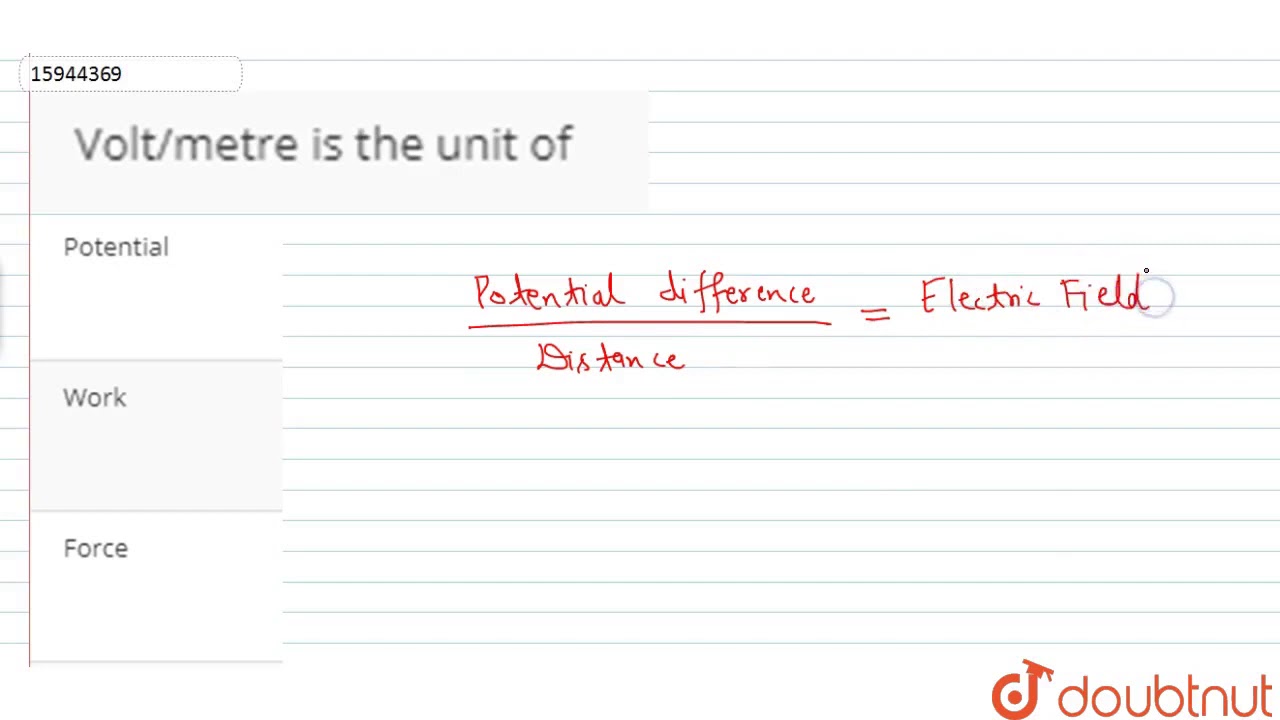 15944369
Volt/metre is the unit of
Potential
Potential difference
Distance
= Electric Field
Work
Force
doubtnut